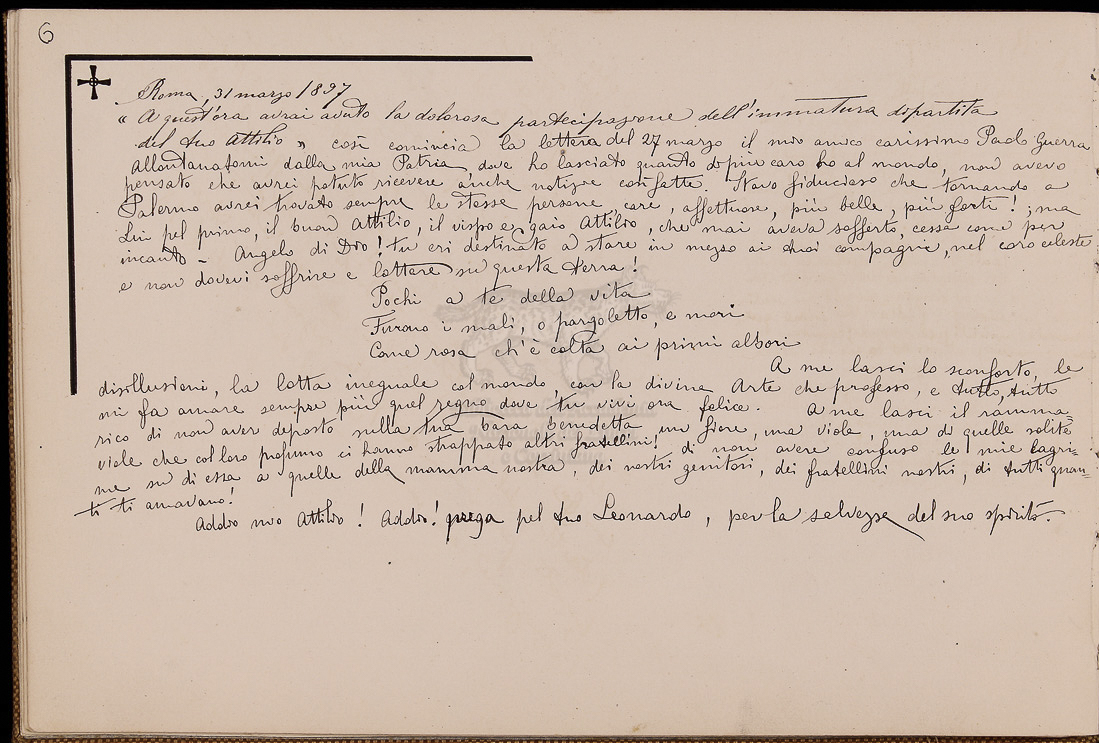 6
Roma, 31 marzo 1897
" A quest'ora avrai avuto la dolorosa partecipazione dell'immatura dipartita
del tuo Attilio " così comincia la lettera del 27 marzo il mio amico carissimo Paolo Guerra
Allontanatomi dalla mia Patria, dove ho lasciato quanto di più caro ho al mondo, non avevo
pensato che avrei potuto ricevere anche notizie così fatte. Stavo fiducioso che tornando a
Palermo avrei trovato sempre le stesse persone care, affettuose, più belle, più forti! ; ma
Lui pel primo, il buon Attilio, il vispo e gaio Attilio, che mai aveva sofferto, cessa come per
incanto - Angelo di Dio! tu eri destinato a stare in mezzo ai tuoi compagni, nel coro celeste
e non dovevi soffrire e lottare su questa terra!
Pochi a te della vita
Furono i mali, o pargoletto, e mori
Come rosa ch'è colta ai primi albori
A me lasci lo sconforto, le
disillusioni, la lotta ineguale col mondo, con la divina Arte che professo, e tutto, tutto
mi fa amare sempre più quel regno dove tu vivi ora felice. A me lasci il ramma-
rico di non aver deposto sulla tua bara benedetta un fiore, una viola, una di quelle solite
viole che col loro profumo ci hanno strappato altri fratellini! di non avere confuso le mie lagri-
me su di essa a quelle della mamma nostra, dei nostri genitori, dei fratellini nostri, di tutti quan-
ti ti amavano!
Addio mio Attilio! Addio! prega pel tuo Leonardo, per la salvezza del suo spirito.